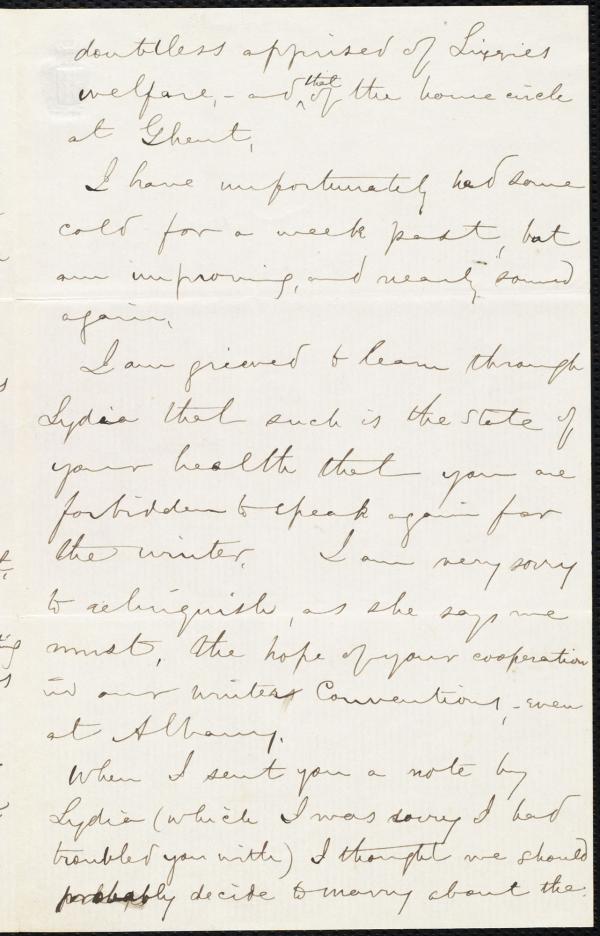 doubtless apprised of Lizzies
welfare, - and that of the home circle
at Ghent,
I have unfortunately had some
cold for a week past, but
am improving, and nearly sound
again,
I am grieved to learn through
Lydia that such is the state of
your health that you are
forbidden to speak again for
the winter. I am very sorry
to relinquish, as she says we
must, the hope of your cooperation
in our winter Conventions, - even
at Albany.
When I sent you a note by
Lydia (which I was sorry I had
troubled you with) I thought we should
probably decide to marry about the